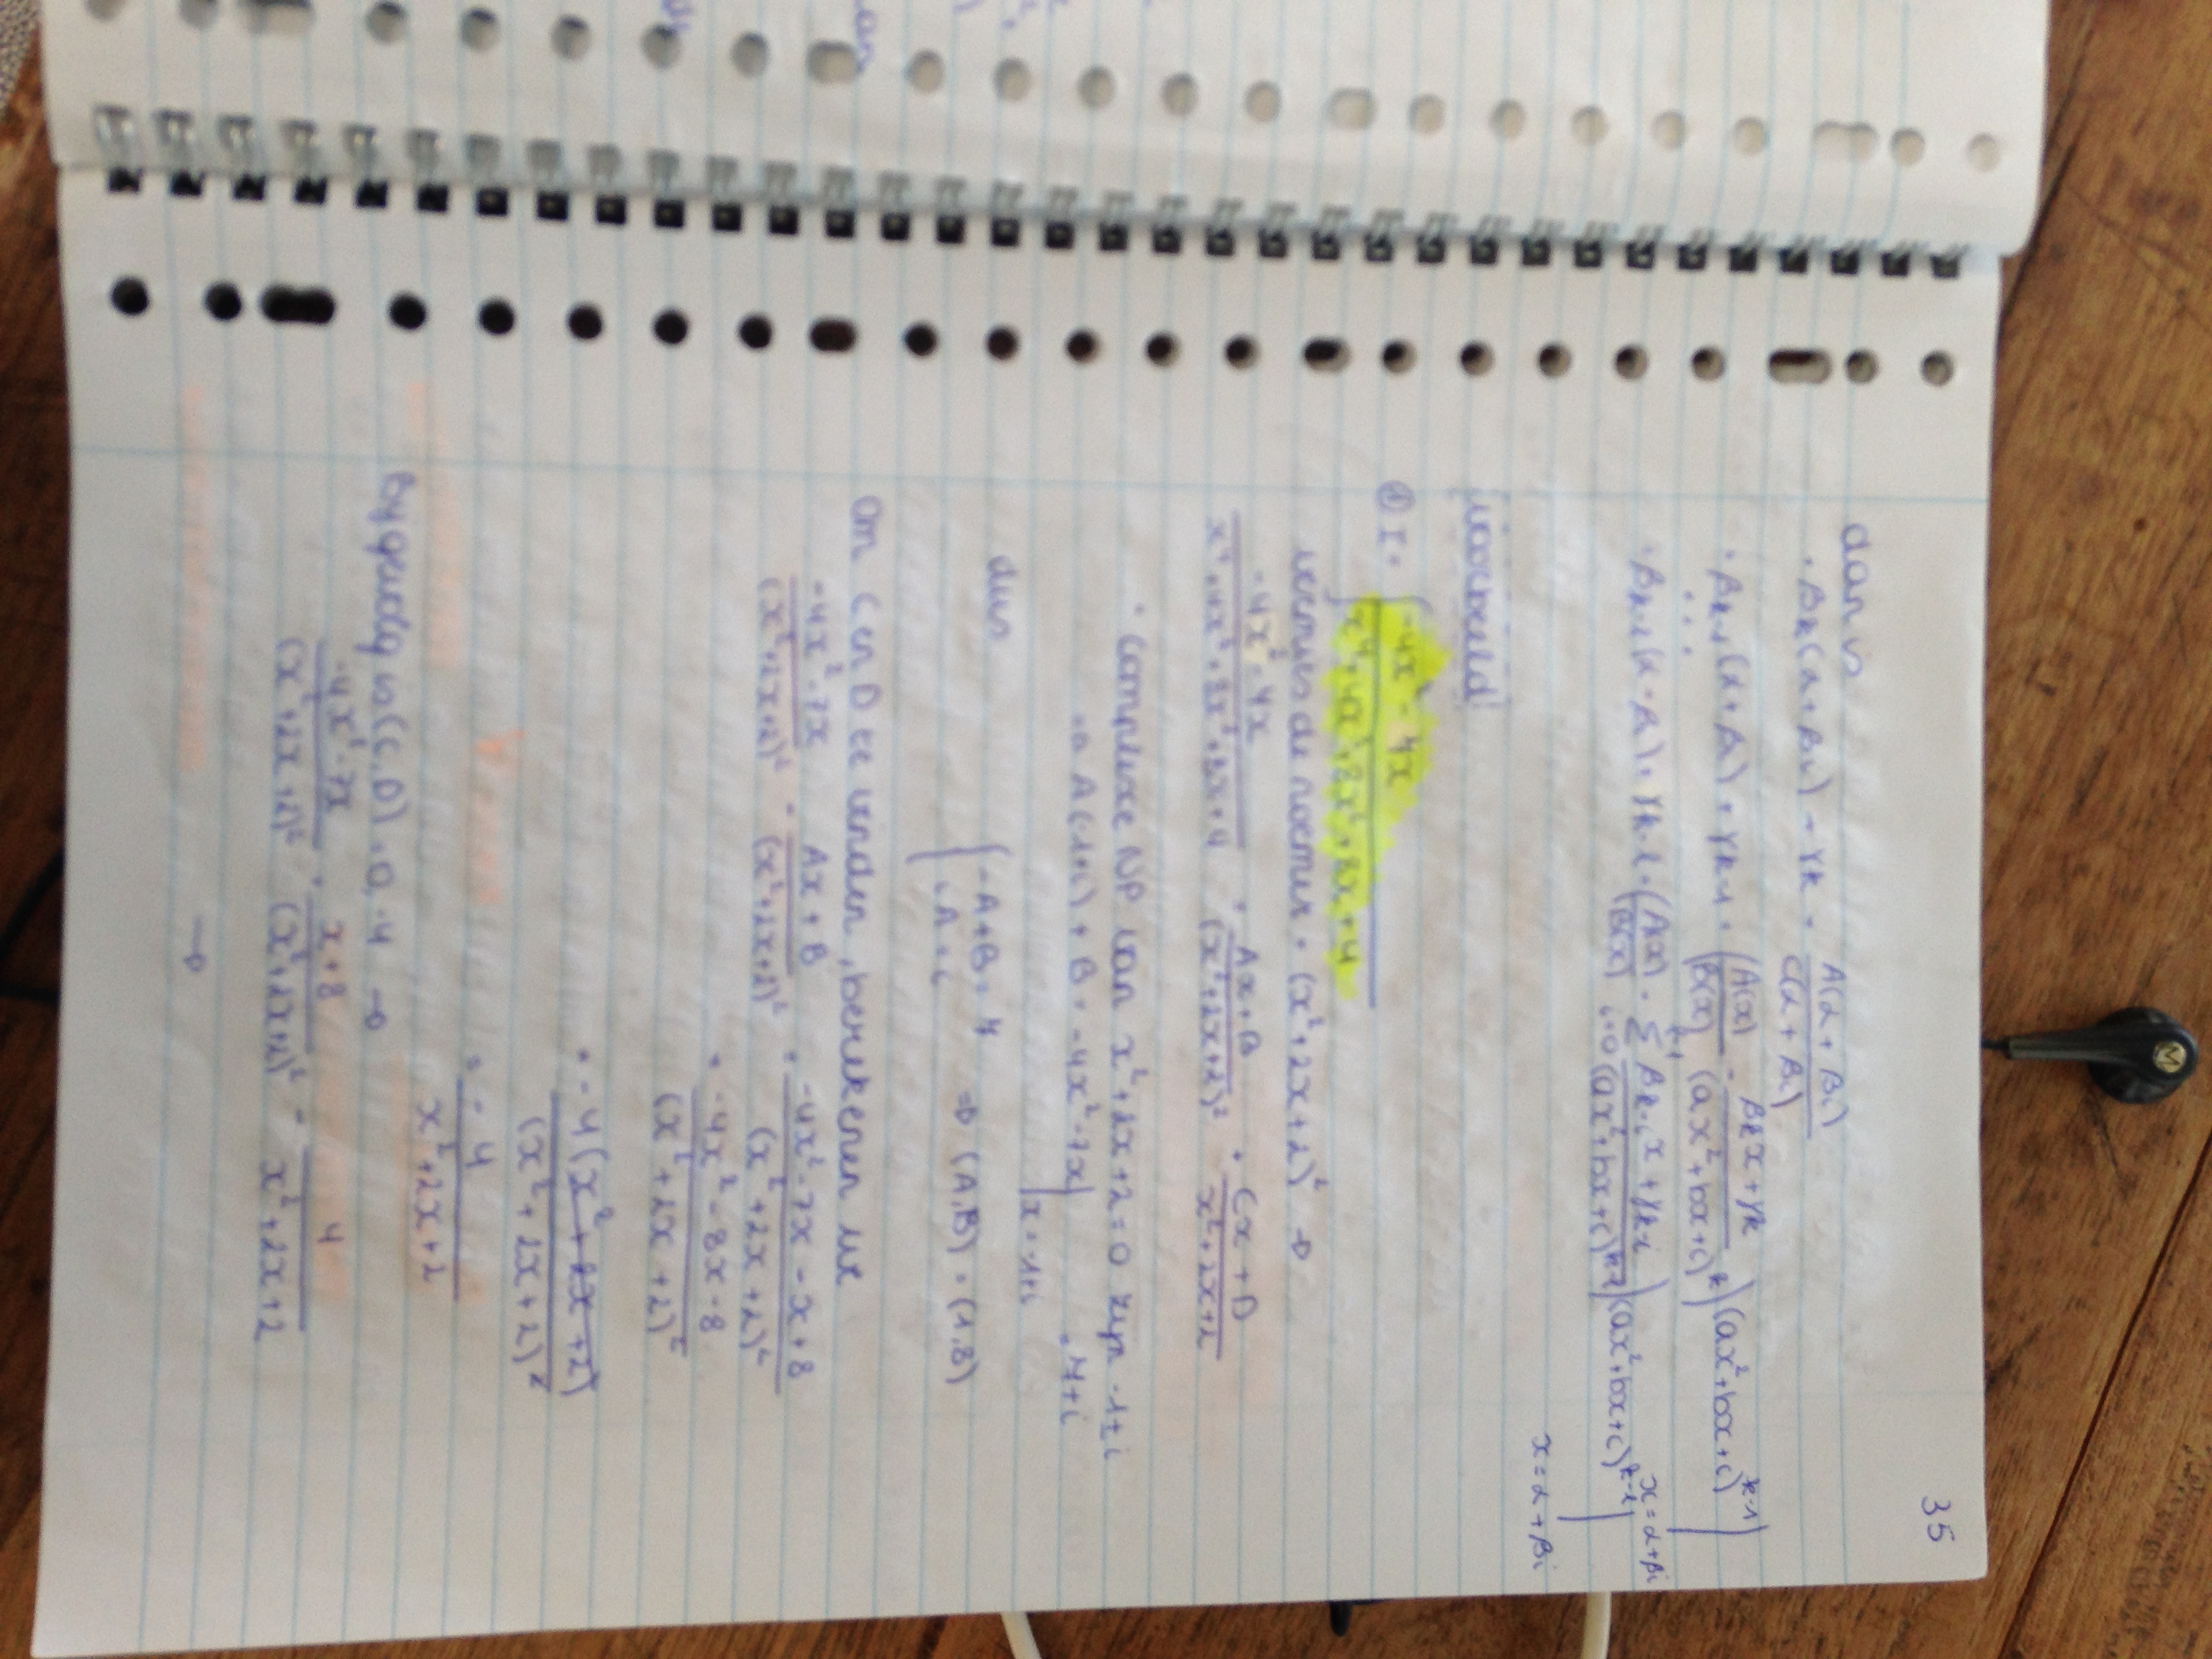 35
dan is
· βk(α+βi) + γk = A(α+βi) / C(α+βi)
· βk-1(α+βi) + γk-1 = (A(x)/B(x) - (βkx+γk)/(ax²+bx+c)^k)(ax²+bx+c)^k-1 | x=α+βi
...
· βk-l(α+βi) + γk-l = (A(x)/B(x) - Σ i=0 l-1 (βk-ix+γk-i)/(ax²+bx+c)^k-l)(ax²+bx+c)^k-l | x=α+βi
voorbeeld
① I = ∫ (-4x²-7x)/(x⁴+4x³+8x²+8x+4)
de noemer = (x²+2x+2)² →
(-4x²-7x)/(x⁴+4x³+8x²+8x+4) = (Ax+B)/(x²+2x+2)² + (Cx+D)/(x²+2x+2)
· complexe NP van x²+2x+2=0 zijn -1±i
⇒ A(-1+i) + B = -4x²-7x | x=-1+i = 7+i
dus { -A+B = 7
iA = i ⇒ (A,B) = (1,8)
Om C en D te vinden, berekenen we
(-4x²-7x)/(x²+2x+2)² - (Ax+B)/(x²+2x+2)² = (-4x²-7x-x+8)/(x²+2x+2)²
= (-4x²-8x-8)/(x²+2x+2)²
= -4(x²+2x+2)/(x²+2x+2)²
= -4/(x²+2x+2)
Bijgevolg is (C,D) = 0,-4 →
(-4x²-7x)/(x²+2x+2)² = (x+8)/(x²+2x+2)² - 4/(x²+2x+2)
→
M